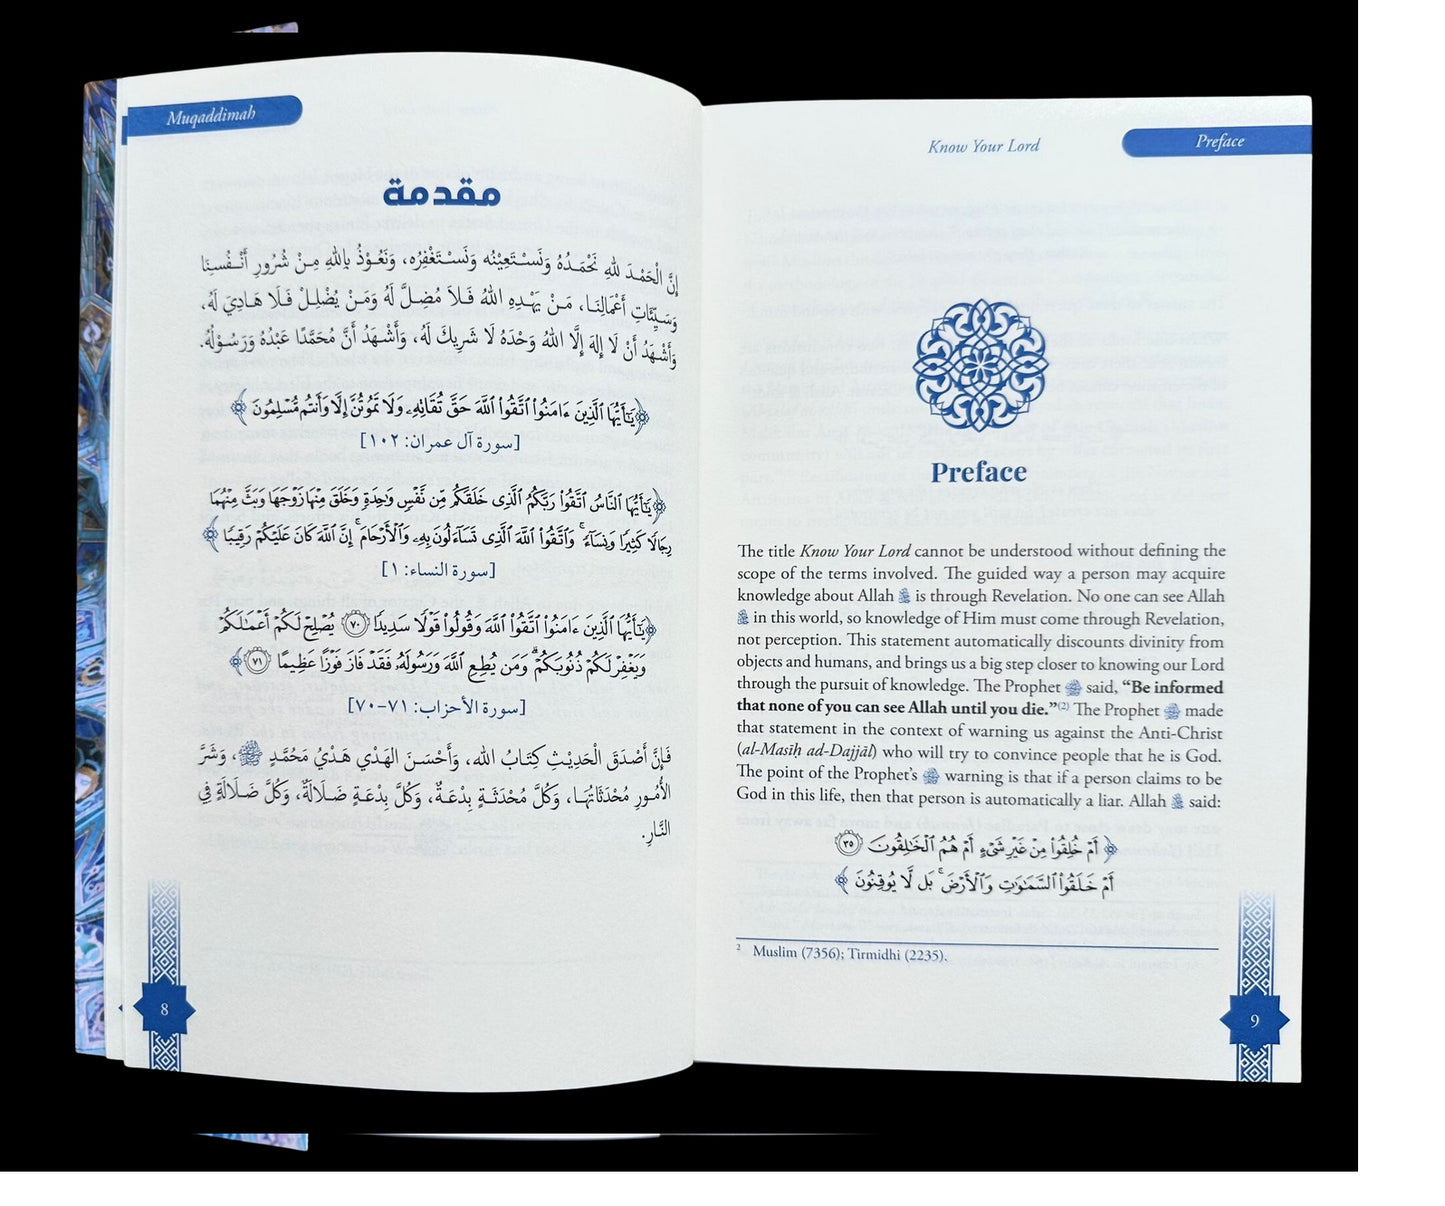 Muqaddimah
مقدمة
إِنَّ الْحَمْدَ لِلهِ نَحْمَدُهُ وَنَسْتَعِيْنُه وَنَسْتَغْفِرُه، وَنَعُوْذُ بِاللهِ مِنْ شُرُورِ أَنْفُسِنَا
وَسَيِّئَاتِ أَعْمَالِنَا، مَنْ يَهْدِهِ اللهُ فَلاَ مُضِلَّ لَهُ وَمَنْ يُضْلِلْ فَلَا هَادِيَ لَهُ،
وَأَشْهَدُ أَنْ لَا إِلهَ إِلَّا اللهُ وَحْدَهُ لَا شَرِيكَ لَهُ، وَأَشْهَدُ أَنَّ مُحَمَّدًا عَبْدُهُ وَرَسُوْلُهُ.
﴿يَٰٓأَيُّهَا ٱلَّذِينَ ءَامَنُوا۟ ٱتَّقُوا۟ ٱللَّهَ حَقَّ تُقَاتِهِۦ وَلَا تَمُوتُنَّ إِلَّا وَأَنتُم مُّسْلِمُونَ﴾
[سورة آل عمران: ١٠٢]
﴿يَٰٓأَيُّهَا ٱلنَّاسُ ٱتَّقُوا۟ رَبَّكُمُ ٱلَّذِى خَلَقَكُم مِّن نَّفْسٍ وَٰحِدَةٍ وَخَلَقَ مِنْهَا زَوْجَهَا وَبَثَّ مِنْهُمَا
رِجَالًا كَثِيرًا وَنِسَآءً ۚ وَٱتَّقُوا۟ ٱللَّهَ ٱلَّذِى تَسَآءَلُونَ بِهِۦ وَٱلْأَرْحَامَ ۚ إِنَّ ٱللَّهَ كَانَ عَلَيْكُمْ رَقِيبًا﴾
[سورة النساء: ١]
﴿يَٰٓأَيُّهَا ٱلَّذِينَ ءَامَنُوا۟ ٱتَّقُوا۟ ٱللَّهَ وَقُولُوا۟ قَوْلًا سَدِيدًا ٧٠ يُصْلِحْ لَكُمْ أَعْمَٰلَكُمْ
وَيَغْفِرْ لَكُمْ ذُنُوبَكُمْ ۗ وَمَن يُطِعِ ٱللَّهَ وَرَسُولَهُۥ فَقَدْ فَازَ فَوْزًا عَظِيمًا ٧١﴾
[سورة الأحزاب: ٧١-٧٠]
فَإِنَّ أَصْدَقَ الْحَدِيْثِ كِتَابُ الله، وَأَحْسَنَ الهَدْي هَدْيُ مَحُمَّدٍ ﷺ، وَشَرَّ
الأُمُورِ مُحْدَثَاتُهَا، وَكُلَّ مُحْدَثَةٍ بِدْعَةٌ، وَكُلَّ بِدْعَةٍ ضَلَالَةٌ، وَكُلَّ ضَلَالَةٍ فِي
النَّارِ.
8
Know Your Lord
Preface
Preface
The title Know Your Lord cannot be understood without defining the
scope of the terms involved. The guided way a person may acquire
knowledge about Allah is through Revelation. No one can see Allah
in this world, so knowledge of Him must come through Revelation,
not perception. This statement automatically discounts divinity from
objects and humans, and brings us a big step closer to knowing our Lord
through the pursuit of knowledge. The Prophet ﷺ said, “Be informed
that none of you can see Allah until you die.”(2) The Prophet ﷺ made
that statement in the context of warning us against the Anti-Christ
(al-Masīḥ ad-Dajjāl) who will try to convince people that he is God.
The point of the Prophet’s ﷺ warning is that if a person claims to be
God in this life, then that person is automatically a liar. Allah said:
﴿أَمْ خُلِقُوا۟ مِنْ غَيْرِ شَىْءٍ أَمْ هُمُ ٱلْخَٰلِقُونَ ٣٥
أَمْ خَلَقُوا۟ ٱلسَّمَٰوَٰتِ وَٱلْأَرْضَ ۚ بَل لَّا يُوقِنُونَ﴾
2 Muslim (7356); Tirmidhi (2235).
9